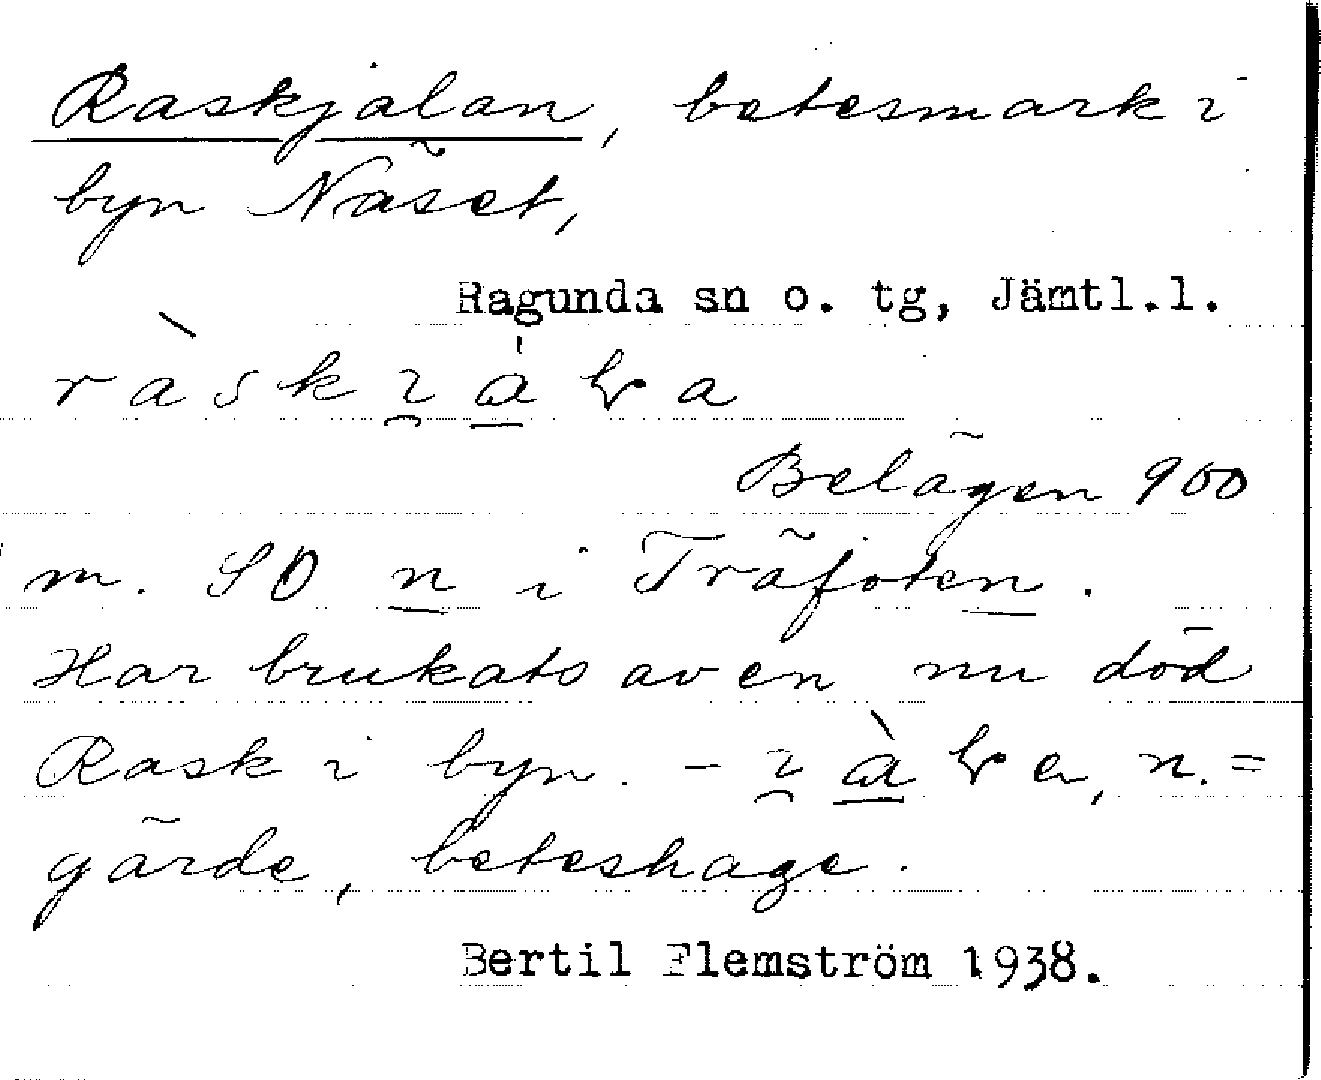 Raskjalan, betesmark i
byn Näset,
Ragunda sn o. tg, Jämtl.l.
Belägen 900
m. SO n i Träfoten.
Har brukats av en nu död
Rask i byn. - n. =
gärde, beteshage.
Bertil Flemström 1938.